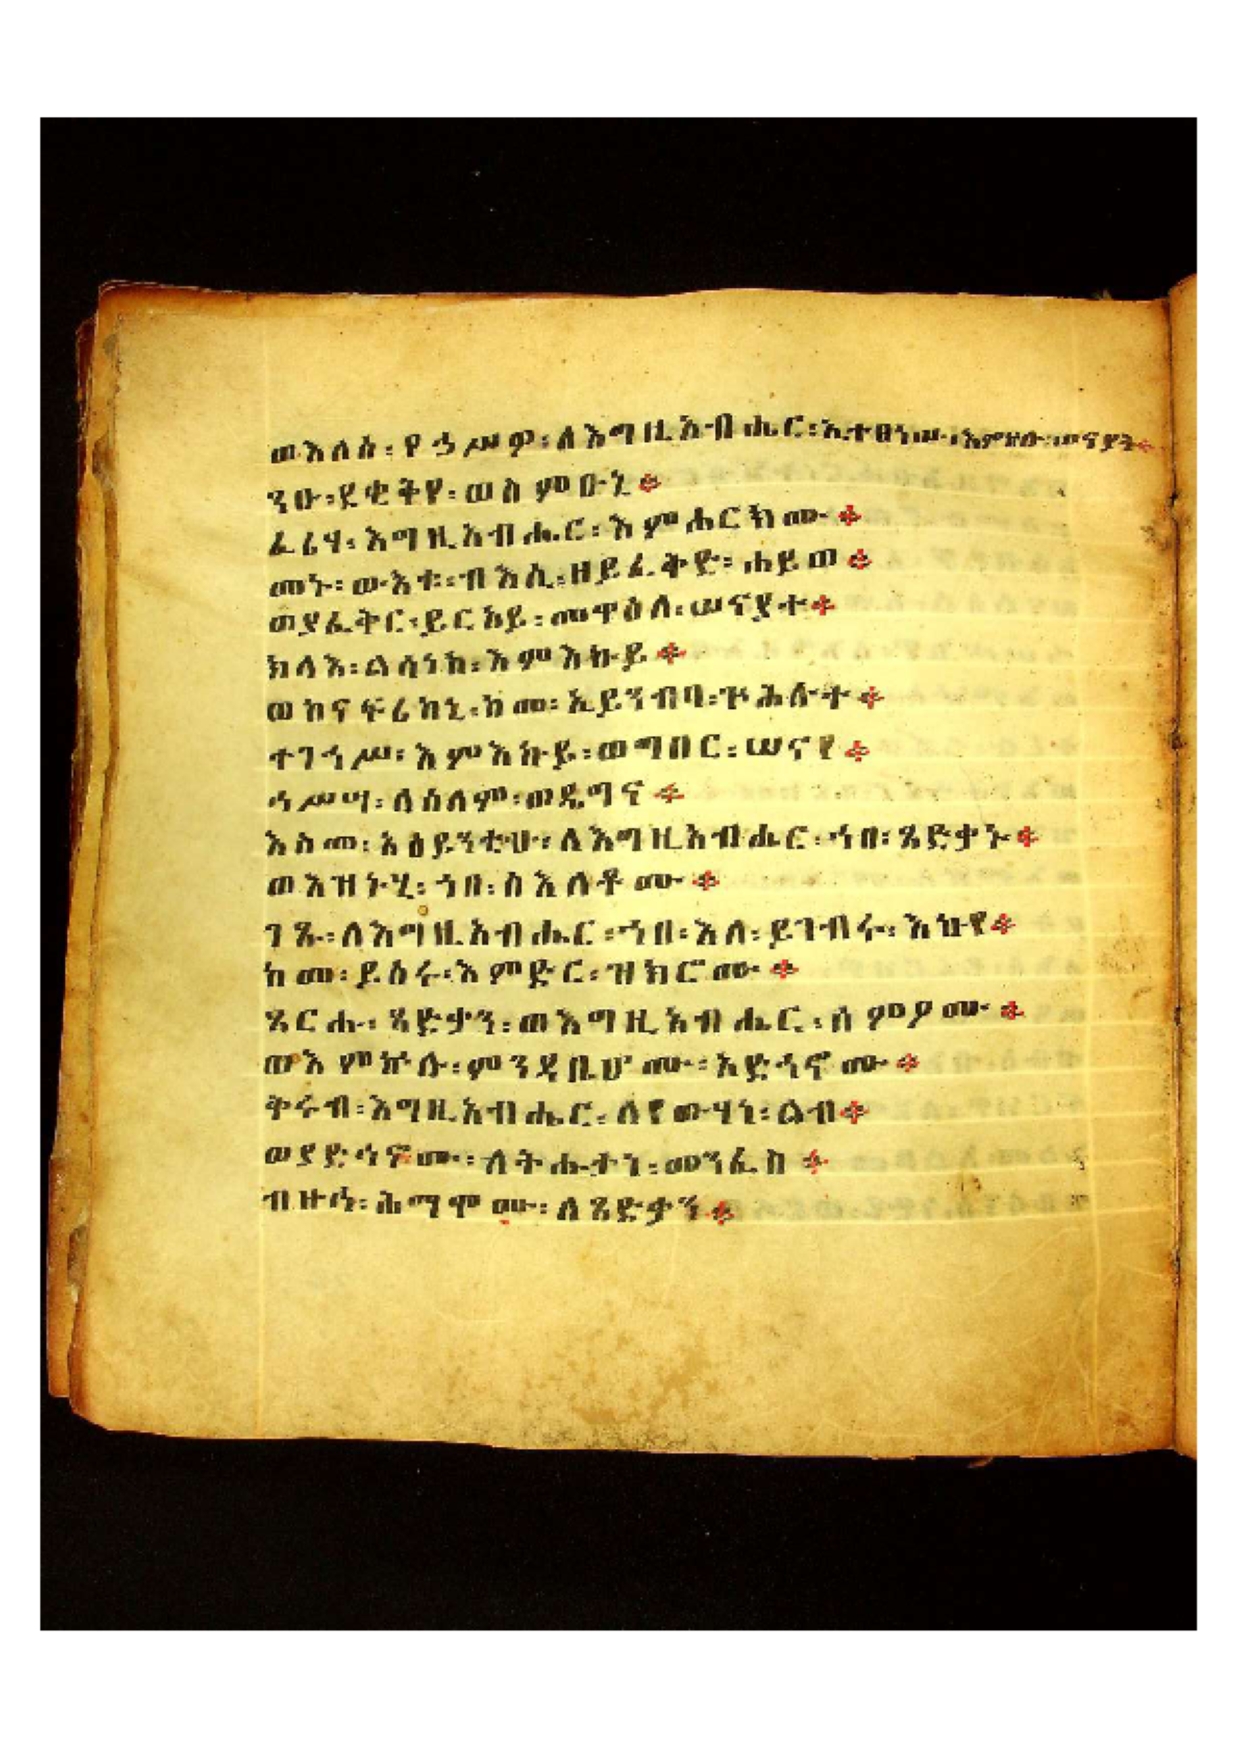 ወእለሰ፡የኃሥዎ፡ለእግዚአብሔር፡ኢተፀነሡ፡እምኵሉ፡ሠናያት።
ንዑ፡ደቂቅየ፡ወስምዑኒ።
ፈሪሃ፡እግዚአብሔር፡እምሐርክሙ።
መኑ፡ውእቱ፡ብእሲ፡ዘይፈቅድ፡ሐይወ።
ወያፈቅር፡ይርአይ፡መዋዕለ፡ሠናያተ።
ክላእ፡ልሳነከ፡እምእኩይ።
ወከናፍሪከኒ፡ከመ፡ኢይንብባ፡ጕሕሉተ።
ተገኀሥ፡እምእኩይ፡ወግበር፡ሠናየ።
ኅሥሣ፡ለሰላም፡ወዴግና።
እስመ፡አዕይንቲሁ፡ለእግዚአብሔር፡ኀበ፡ጻድቃኑ።
ወእዝኑሂ፡ኀበ፡ስእለቶሙ።
ገጹ፡ለእግዚአብሔር፡ኀበ፡እለ፡ይገብሩ፡እኩየ።
ከመ፡ይሰሩ፡እምድር፡ዝክሮሙ።
ጸርሑ፡ጻድቃን፡ወእግዚአብሔር፡ሰምዖሙ።
ወእምኵሉ፡ምንዳቤሆሙ፡አድኃኖሙ።
ቅሩብ፡እግዚአብሔር፡ለየውሃነ፡ልብ።
ወያድኅኖሙ፡ለትሑታነ፡መንፈስ።
ብዙኅ፡ሕማሞሙ፡ለጻድቃን።